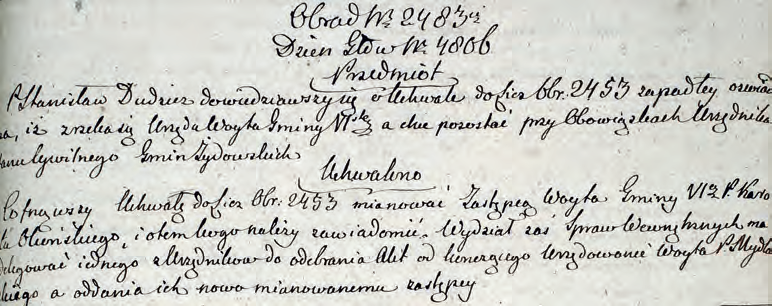 Obrad Nr 2483ci
Dzien: Głow Nr 4806
Przedmiot
P. Stanisław Dudzicz dowiedziawszy się o Uchwale do Licz Obr. 2453 zapadłey oswiad
za, iż zrzeka się Urzędu Woyta Gminy VIstey a chce pozostać przy Obowiązkach Urzędnika
Stanu Cywilnego Gmin Żydowskich
Uchwalono
Cofnąwszy Uchwałę do Licz Obr. 2453 mianować Zastępcą Woyta Gminy VItey P. Karo
la i o tem kogo należy zawiadomić. Wydział zaś Spraw Wewnętrznych ma
delegować iednego z Urzędników do odebrania Akt od Urzędowanie Woyta P.
skiego a oddania ich nowo mianowanemu zastępcy